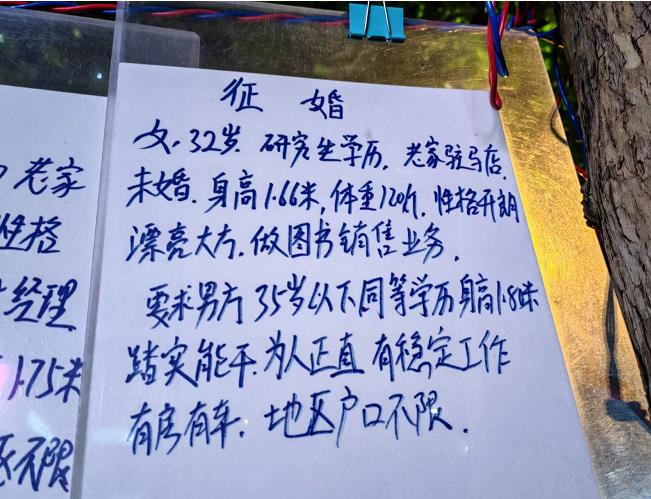 老家
性格
经理
1.75米
不限
征 婚
女.32岁.研究生学历.老家驻马店.
未婚.身高1.66米,体重120斤.性格开朗
漂亮大方.做图书销售业务.
要求男方35岁以下同等学历身高1.80米
踏实能干.为人正直 有稳定工作
有房有车.地区户口不限.